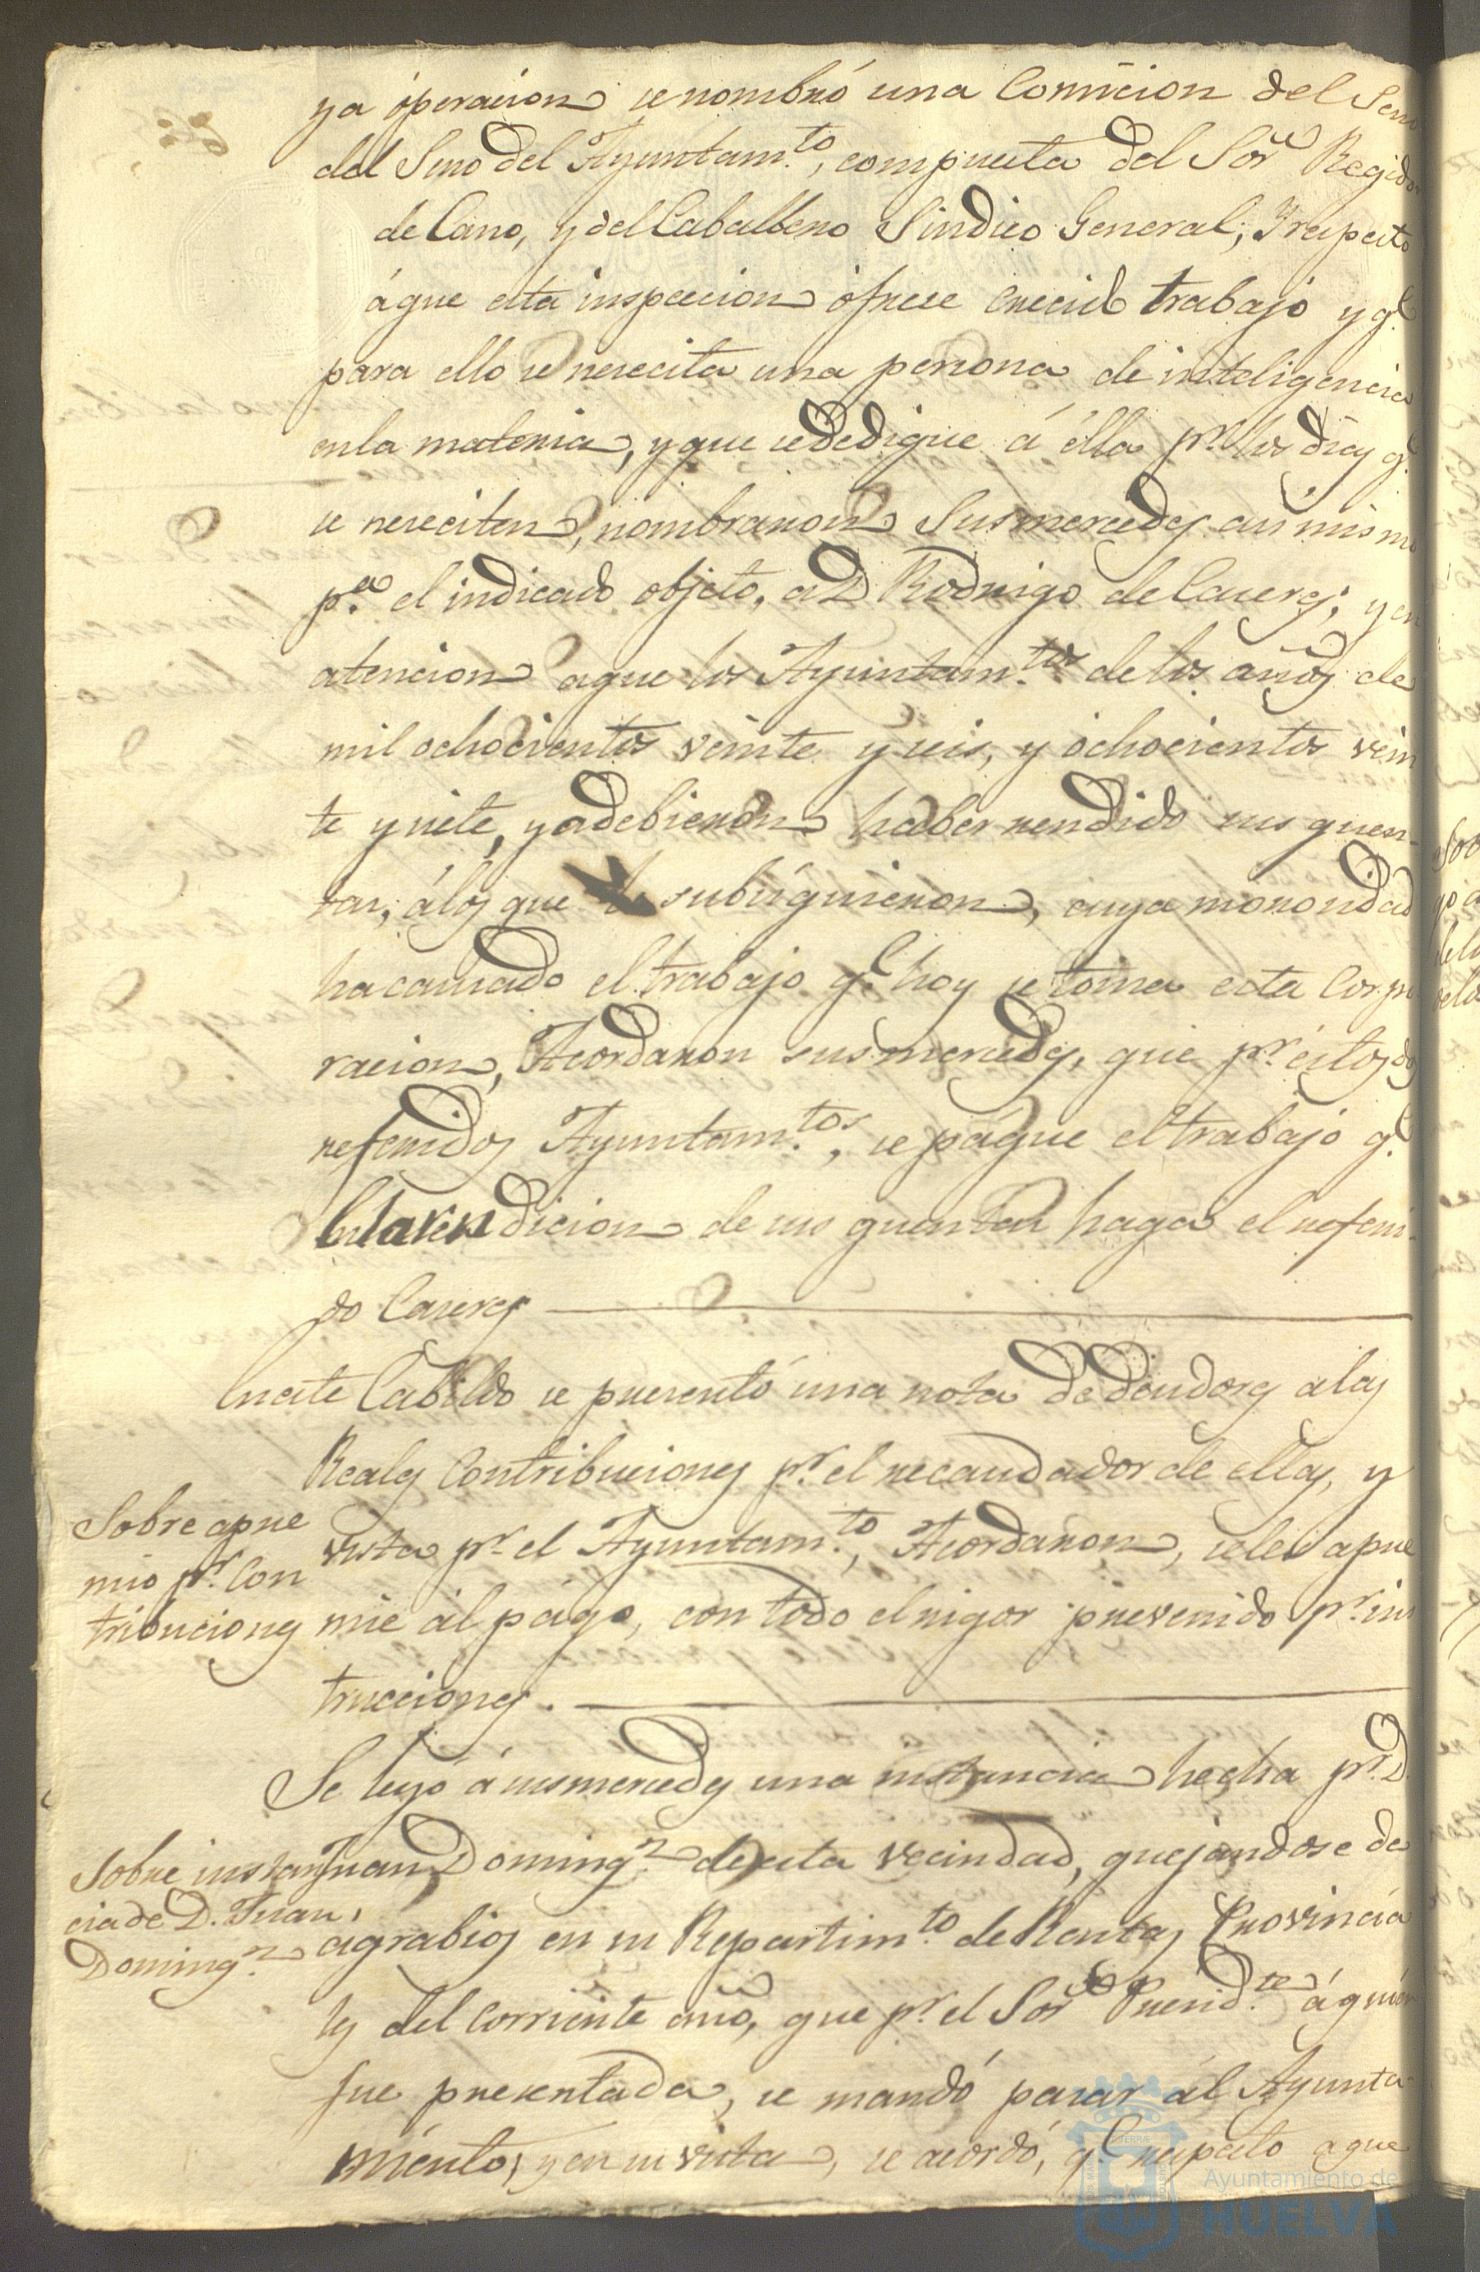 ya óperacion se nombró una Comicion del Seno
del Seno del Ayuntam.to, compuesta del Sor. Regidor
de Cano, y del Caballero Sindico General; Y respecto
á que esta inspeccion ófrese crecido trabajo y q.e
para ello se nesecita una persona de inteligencia
en la materia, y que se dedique á élla p.r los dias q.e
se neseciten, nombraron Susmercedes asi mismo
p.a el indicado objeto, a D Rodrigo de Caseres; y en
atencion a que los Ayuntam.tos de los años de
mil ochocientos veinte y seis, y ochocientos vein
te y siete, ya debieron haber rendido sus quen-
tas, á los que subsiguieron, cuya morosidad
ha causado el trabajo q.e hoy se toma esta Corpo
racion, Acordaron susmercedes, que p.r éstos dos
referidos Ayuntam.tos, se págue el trabajo q.e
en la rendicion de sus quentas haga el referi-
do Caseres
En este Cabildo se presentó una nota de deudores a las
Reales Contribuciones p.r el recaudador de ellas, y
Sobre apre
vista p.r el Ayuntam.to, Acordaron, se les apre
mio p.r Con
mie al págo, con todo el rigor prevenido p.r ins
tribuciones
trucciones.
Se leyó á susmercedes una instancia hecha p.r D.
Sobre instan
Juan Doming.z de esta vecindad, quejandose de
cia de D. Juan
agrabios en su Repartim.to de Rentas Provincia
Doming.z
les del corriente año, que p.r el Sor. Presid.te á quien
fue presentada, se mandó pasar ál Ayunta
miento, y en su vista, se acordó, q.e respecto a que
Ayuntamiento de
HUELVA